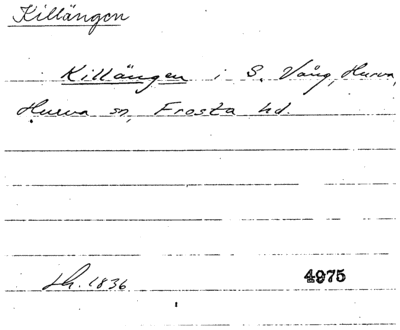 Killängen
Killängen i S. Vång, Hurva,
Hurva sn, Frosta hd.
Lh. 1836
4975